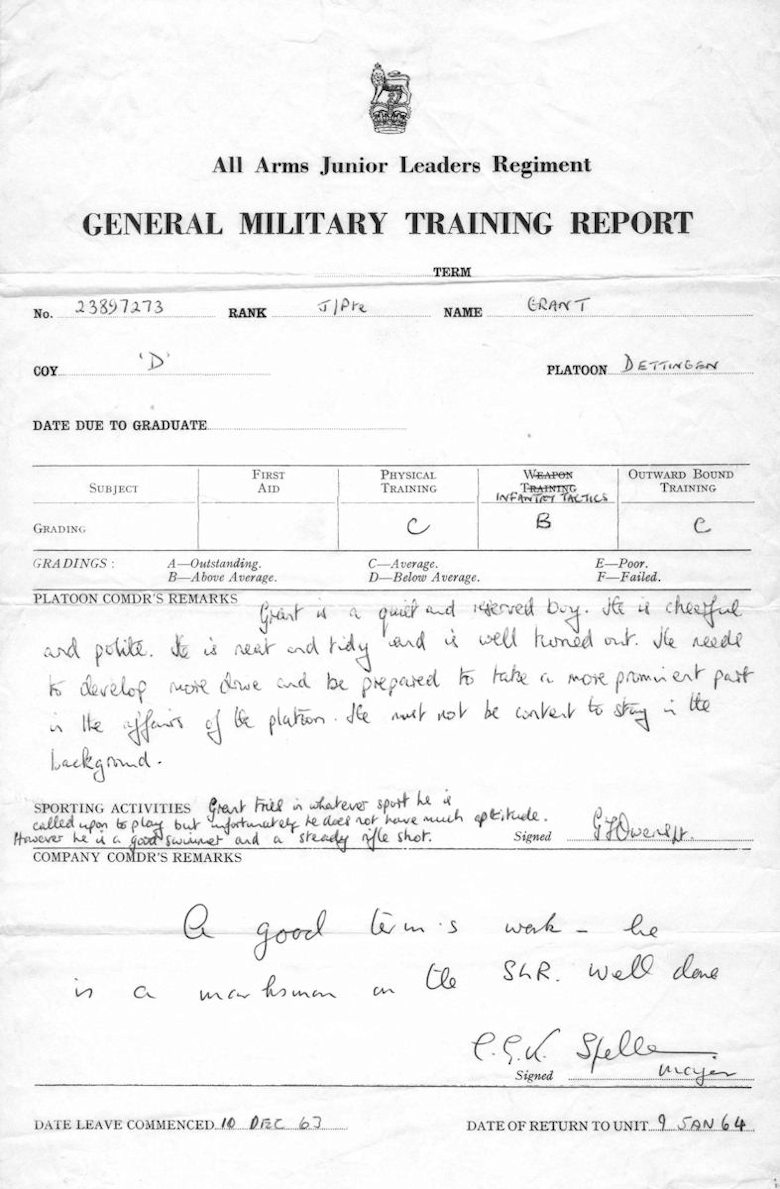 All Arms Junior Leaders Regiment
GENERAL MILITARY TRAINING REPORT
TERM
No. 23897273 RANK J/Pte NAME GRANT
COY 'D' PLATOON DETTINGEN
DATE DUE TO GRADUATE
SUBJECT FIRST AID PHYSICAL TRAINING WEAPON TRAINING INFANTRY TACTICS OUTWARD BOUND TRAINING
GRADING C B C
GRADINGS: A—Outstanding. C—Average. E—Poor.
B—Above Average. D—Below Average. F—Failed.
PLATOON COMDR'S REMARKS
Grant is a quiet and reserved boy. He is cheerful
and polite. He is neat and tidy and is well turned out. He needs
to develop more drive and be prepared to take a more prominent part
in the affairs of the platoon. He must not be content to stay in the
background.
SPORTING ACTIVITIES Grant tries in whatever sport he is
called upon to play but unfortunately he does not have much aptitude.
However he is a good swimmer and a steady rifle shot. Signed
COMPANY COMDR'S REMARKS
A good term's work - he
is a marksman on the SLR. Well done
Signed Major
DATE LEAVE COMMENCED 10 DEC 63 DATE OF RETURN TO UNIT 9 JAN 64